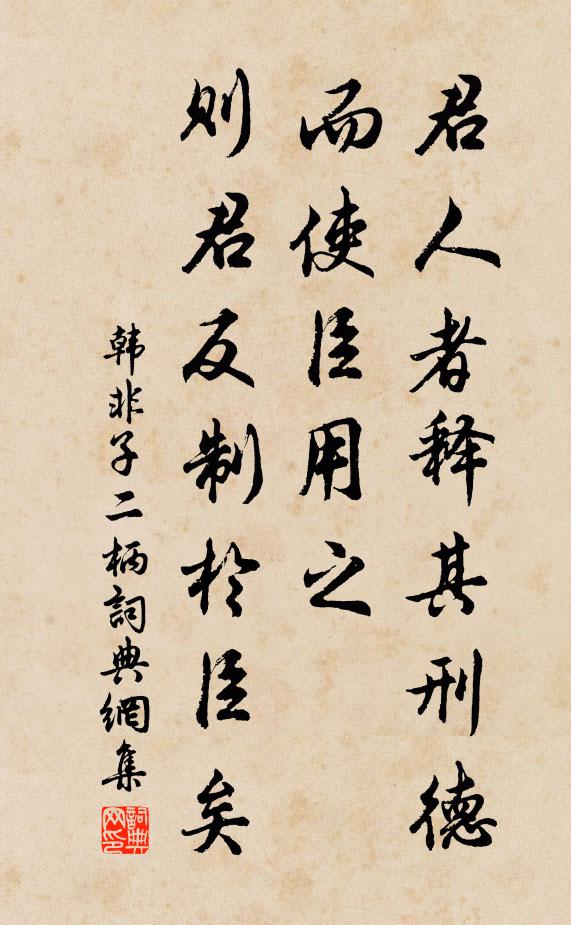 君人者释其刑德
而使臣用之
则君反制於臣矣
韩非子二柄詞典網集
詞典网印